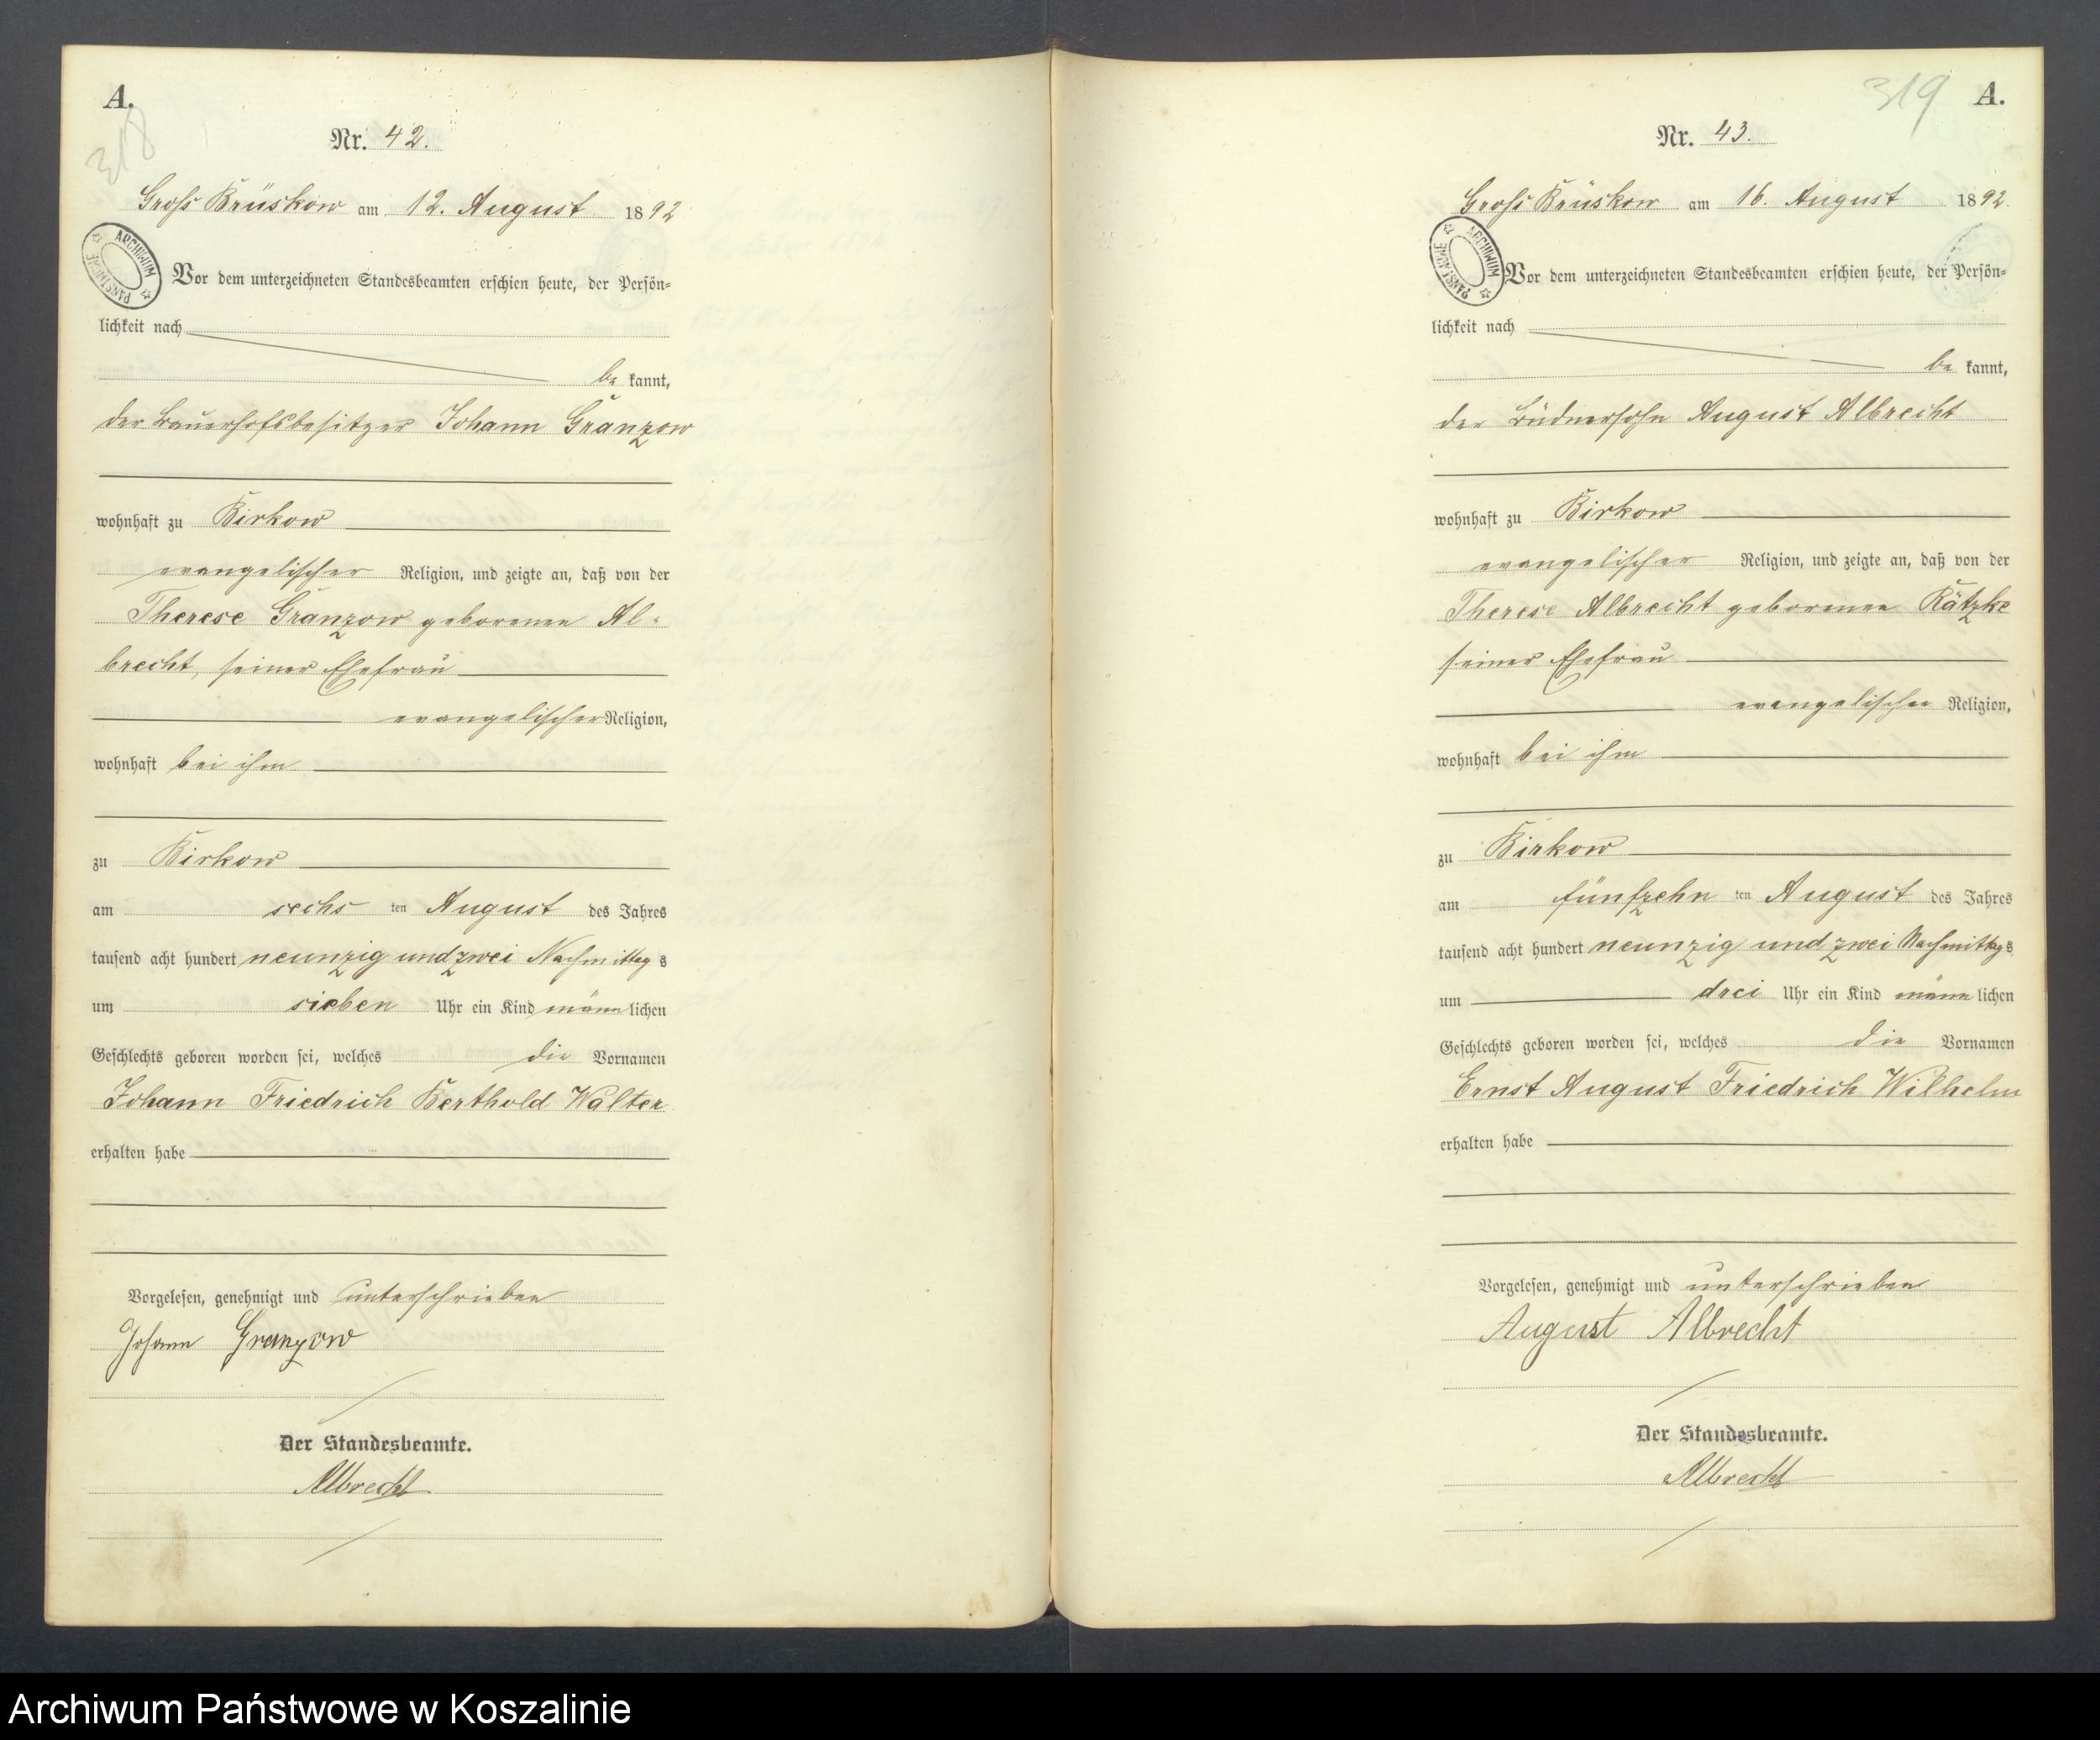 A.
318
Nr. 42.
Gross Brüskow am 12. August 1892
ARCHIWUM PAŃSTWOWE
Vor dem unterzeichneten Standesbeamten erschien heute, der Persön-
lichkeit nach
be kannt,
der Bauerhofsbesitzer Johann Granzow
wohnhaft zu Birkow
evangelischer Religion, und zeigte an, daß von der
Therese Granzow geborenen Al-
brecht, seiner Ehefrau
evangelischer Religion,
wohnhaft bei ihm
zu Birkow
am sechs ten August des Jahres
tausend acht hundert neunzig und zwei Nachmittag s
um sieben Uhr ein Kind männ lichen
Geschlechts geboren worden sei, welches die Vornamen
Johann Friedrich Berthold Walter
erhalten habe
Vorgelesen, genehmigt und unterschrieben
Johann Granzow
Der Standesbeamte.
Albrecht
319 A.
Nr. 43.
Gross Brüskow am 16. August 1892.
ARCHIWUM PAŃSTWOWE
Vor dem unterzeichneten Standesbeamten erschien heute, der Persön-
lichkeit nach
be kannt,
der Büdnersohn August Albrecht
wohnhaft zu Birkow
evangelischer Religion, und zeigte an, daß von der
Therese Albrecht geborenen Kätzke
seiner Ehefrau
evangelischer Religion,
wohnhaft bei ihm
zu Birkow
am fünfzehn ten August des Jahres
tausend acht hundert neunzig und zwei Nachmittag s
um drei Uhr ein Kind männ lichen
Geschlechts geboren worden sei, welches die Vornamen
Ernst August Friedrich Wilhelm
erhalten habe
Vorgelesen, genehmigt und unterschrieben
August Albrecht
Der Standesbeamte.
Albrecht
Archiwum Państwowe w Koszalinie